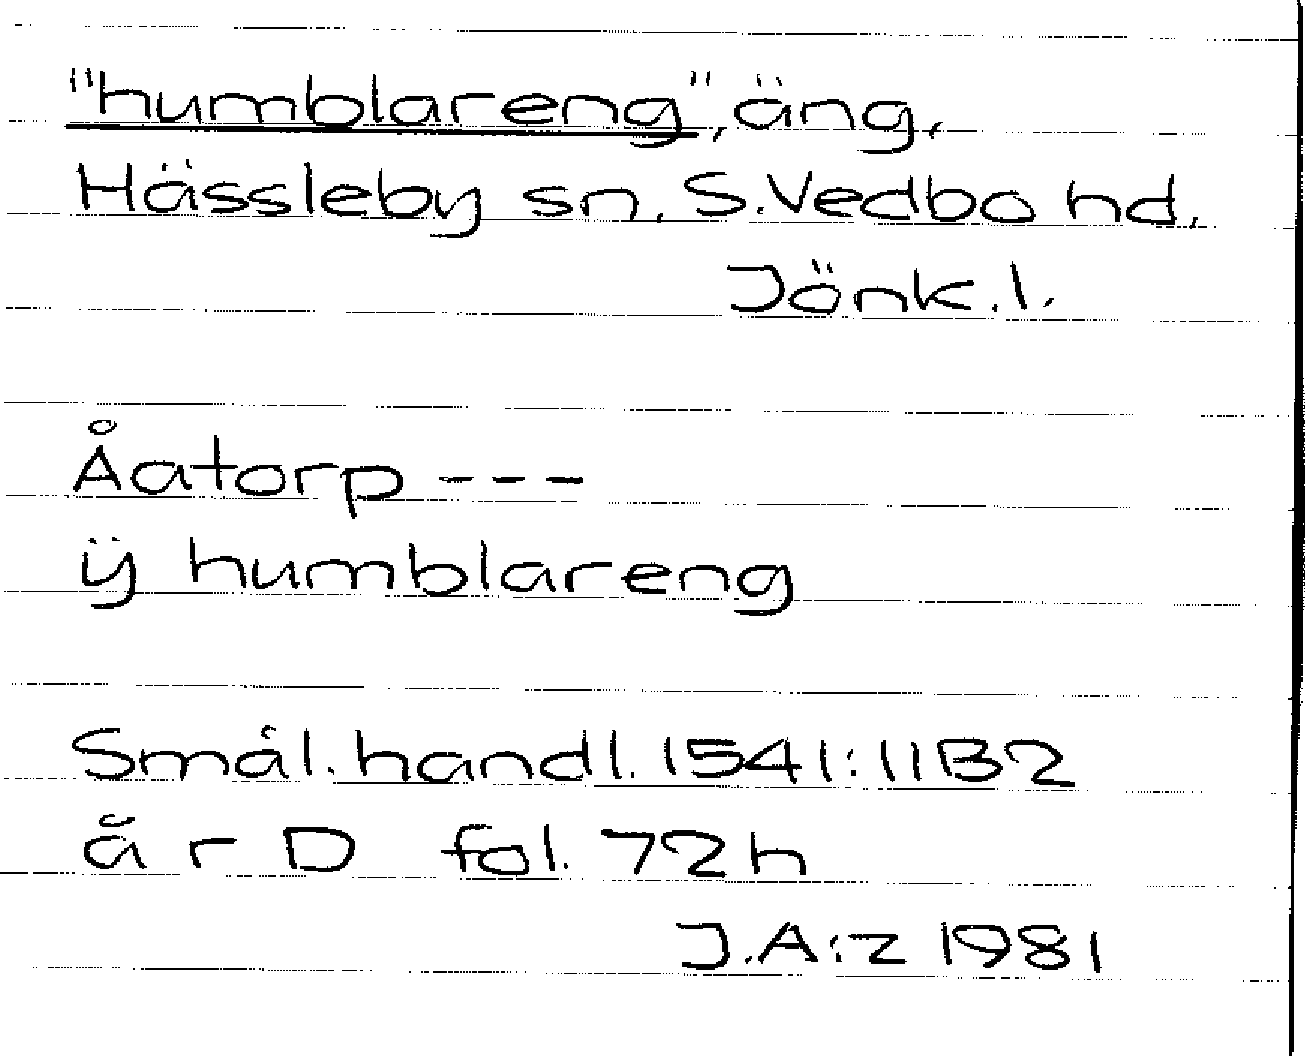 "humblareng", äng,
Hässleby sn. S. Vedbo hd.
Jönk. l.
Åatorp - - -
ÿ humblareng
Smål. handl. 1541:11B2
år D fol. 72 h
J.A:z 1981